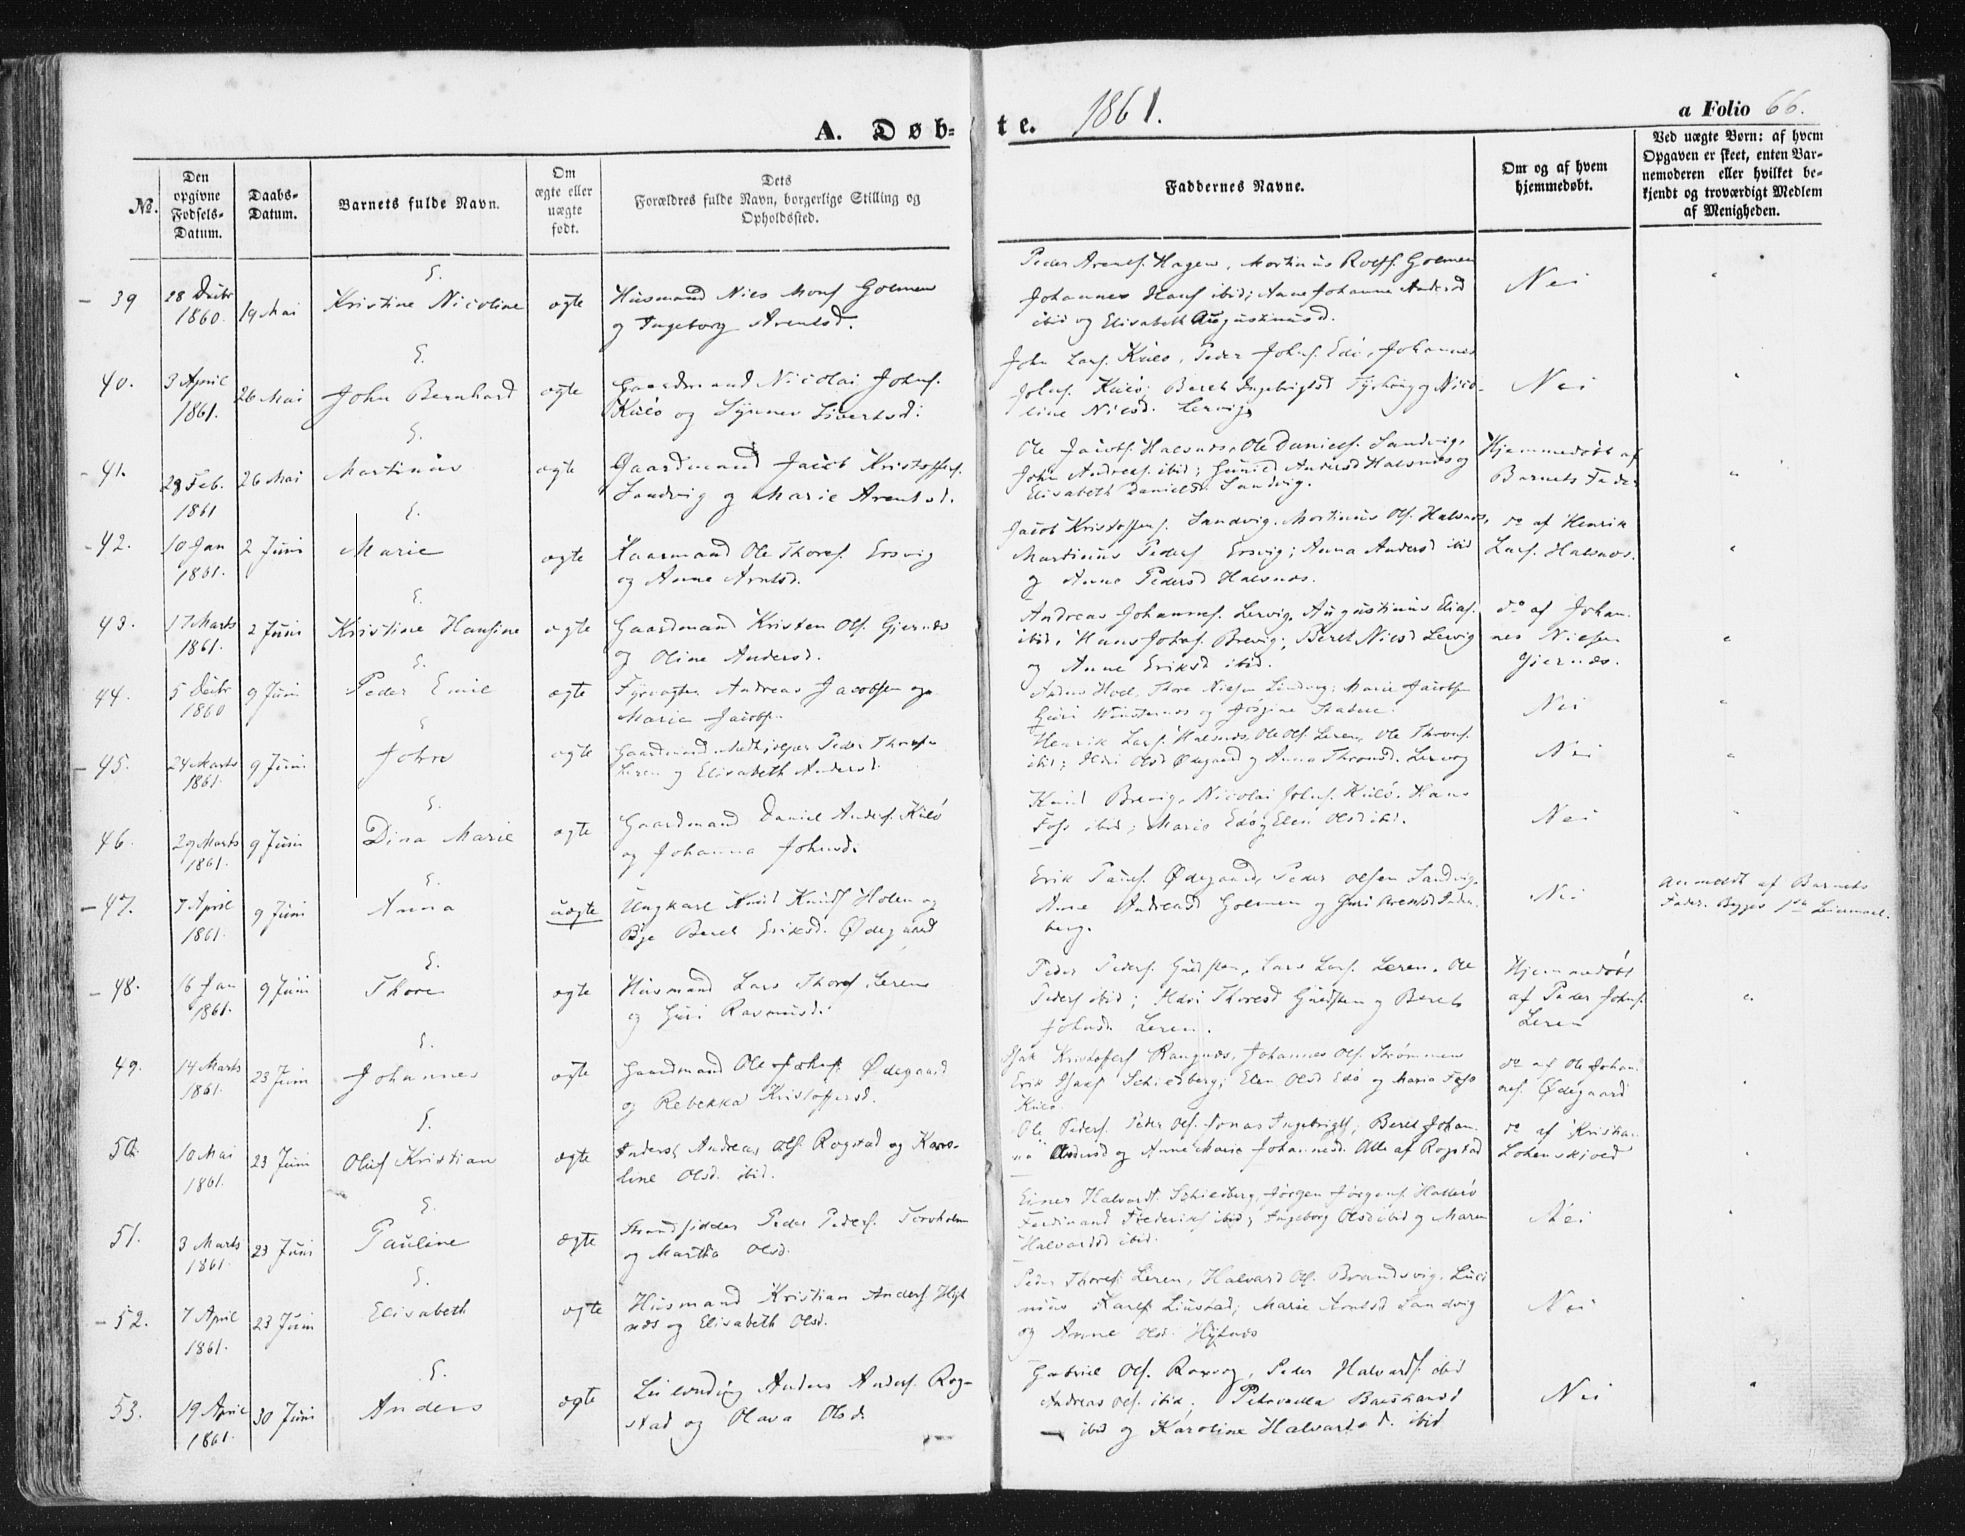 A. Døb- te. 1861. a Folio 66.
№.
Den opgivne Fødsels-Datum.
Daabs-Datum.
Barnets fulde Navn.
Om ægte eller uægte født.
Dets Forældres fulde Navn, borgerlige Stilling og Opholdssted.
Faddernes Navne.
Om og af hvem hjemmedøbt.
Ved uægte Børn: af hvem Opgaven er skeet, enten Barnemoderen eller hvilket bekjendt og troværdigt Medlem af Menigheden.
39 28 Decbr 1860. 19 Mai Kristine Nicoline ægte Husmand Niels Monss. Golmen
og Ingeborg Arentsd.
Peder Arentss. Hagen, Martinus Rolfss. Golmen
Johannes Hanss. ibid; Anne Johanna Andersd
ibid og Elisabeth Augustinusd.
Nei
40. 3 April 1861. 26 Mai John Bernhard ægte Gaardmand Nicolai Johns.
Kulø og Synnev Sivertsd.
John Larss. Kulø, Peder Johns. Edø, Johannes
Johns. Kulø; Bereth Ingebrigtsd og Nico-
line Nielsd. Lervig
Nei
41. 28 Feb. 1861 26 Mai Martinus ægte Gaardmand Jacob Kristoffers.
Sandvig og Marie Arentsd.
Ole Jacobs. Halsnæs, Ole Daniels. Sandvig,
John Andreass. ibid; Gunild Andersd Halsnæs og
Elisabeth Danielsd. Sandvig.
Hjemmedøbt af
Barnets Fader
42. 10 Jan 1861. 2 Juni Marie ægte Kaarmand Ole Thoress. Ersvig
og Anne Arntsd.
Jacob Kristoffers. Sandvig, Martinus Ols. Halsnæs,
Martinus Peders. Ersvig; Anna Andersd ibid
og Anne Pedersd Halsnæs.
do af Henrik
Lars. Halsnæs.
43. 17 Marts 1861. 2 Juni Kristine Hansine ægte Gaardmand Kristen Ols. Gjernæs
og Oline Andersd.
Andreas Johanness. Lervig, Augustinus Elias.
ibid, Hans Johns. Brevig; Bereth Nielsd Lervig
og Anne Eriksd ibid.
do af Johan-
nes Nielsen
Gjernæs.
44. 5 Decbr 1860 9 Juni Peder Emil ægte Fyrvogter Andreas Jacobsen og
Marie Jacobsen
Anders Hoel, Thore Nielsen Lindvig; Marie Jacobsen
Guri og Jørgine
Nei
45. 24 Marts 1861. 9 Juni John ægte Gaardmand Peder
Leren og Elisabeth Andersd.
Henrik Lars. Halsnæs, Ole Ols. Leren, Ole Throns.
ibid; Ildri Olsd Ødegaard og Anna Thronsd. Lervog
Nei
46. 29 Marts 1861. 9 Juni Dina Marie ægte Gaardmand Daniel Anders. Kulø
og Johanna Johnsd.
Knud Brevig, Nicolai Johns. Kulø, Hans
Foss ibid; Marie Edø og Elen Olsd ibid.
Nei
47. 7 April 1861. 9 Juni Anna uægte Ungkarl Knud Knuds. Holen og
Pige Bereth Eriksd. Ødegaard
Erik Ødegaard, Peder Olsen Sandvig,
Anne Andreasd Golmen og Guri Arentsd
berg.
Nei Anmeldt af Barnets
Fader. Begges 1ste Leiermaal.
48. 16 Jan 1861. 9 Juni Thore ægte Husmand Lars Thores. Leren
og Guri Rasmusd.
Peder Peders. Lars Lars. Leren, Ole
Peders ibid; Ildri Thoresd og Bereth
Johnsd. Leren.
Hjemmedøbt
af Peder Johns.
Leren
49. 14 Marts 1861. 23 Juni Johannes ægte Gaardmand Ole Johs. Ødegaard
og Rebekka Kristoffersd.
Isak Kristoffers Rangnæs, Johannes Ols. Strømmen
Erik Isaks Schielberg; Elen Olsd Edø og Maria Foss
Kulø.
do af Ole Johan-
nes. Ødegaard
50. 10 Mai 1861. 23 Juni Oluf Kristian ægte Andreas Ols. Rogstad og Karo-
line Olsd. ibid.
Ole Peders. Peder Ols. Jonas Ingebrigts; Bereth Johan-
na Andersd og Anne Marie Johannesd. Alle af Rogstad
do af Kristian
Lohenskiold
51. 3 Marts 1861. 23 Juni Pauline ægte Strandsidder Peder Peders. Torvholm
og Martha Olsd.
Einer Halvards. Schielberg, Jørgen Jørgens.
Ferdinand Frederiks ibid; Ingeborg Olsd ibid og Maren
Halvardsd ibid.
Nei
52. 7 April 1861. 23 Juni Elisabeth ægte Husmand Kristian Anders. Hyt-
næs og Elisabeth Olsd.
Peder Thores. Leren, Halvard Ols. Brandsvig, Luci-
nius Karls. Liustad; Marie Arntsd Sandvig
og Anne Olsd. Hytnæs
Nei
53. 19 April 1861. 30 Juni Anders ægte Leilending Anders Anders. Rog-
stad og Olava Olsd.
Gabriel Ols. Roxvog, Peder Halvards. ibid
Andreas Ols. ibid; Petronella
ibid og Karoline Halvardsd. ibid
Nei